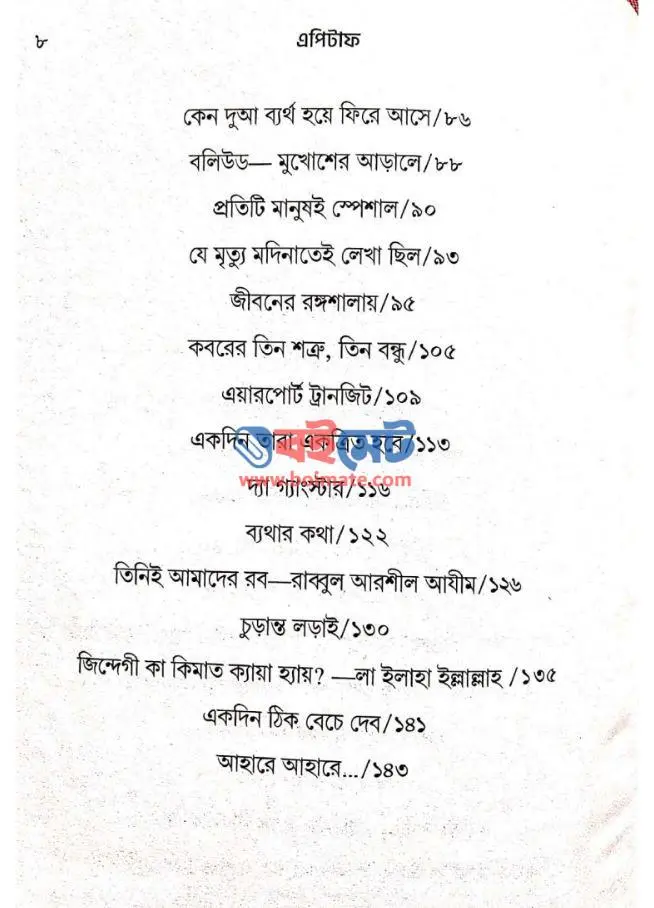 ৮
এপিটাফ
কেন দুআ ব্যর্থ হয়ে ফিরে আসে/৮৬
বলিউড— মুখোশের আড়ালে/৮৮
প্রতিটি মানুষই স্পেশাল/৯০
যে মৃত্যু মদিনাতেই লেখা ছিল/৯৩
জীবনের রঙ্গশালায়/৯৫
কবরের তিন শত্রু, তিন বন্ধু/১০৫
এয়ারপোর্ট ট্রানজিট/১০৯
একদিন তারা একত্রিত হবে/১১৩
বইমেট
www.boimate.com
দ্যা গ্যাংস্টার/১১৬
ব্যথার কথা/১২২
তিনিই আমাদের রব—রাব্বুল আরশীল আযীম/১২৬
চুড়ান্ত লড়াই/১৩০
জিন্দেগী কা কিমাত ক্যায়া হ্যায়? —লা ইলাহা ইল্লাল্লাহ /১৩৫
একদিন ঠিক বেচে দেব/১৪১
আহারে আহারে.../১৪৩